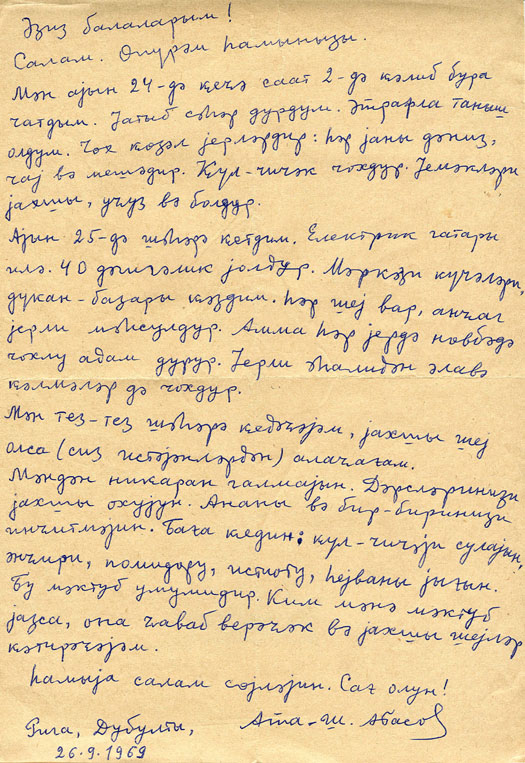 Әзиз балаларым!
Салам. Өпүрәм һамынызы.
Мән ајын 24-дә ҝечә саат 2-дә ҝәлиб бура
чатдым. Јатыб сәһәр дурдум. Әтрафла таныш
олдум. Чох ҝөзәл јерләрдир: һәр јаны дәниз,
чај вә мешәдир. Ҝүл-чичәк чохдур. Јемәкләри
јахшы, учуз вә болдур.
Ајын 25-дә шәһәрә ҝетдим. Електрик гатары
илә. 40 дәгигәлик јолдур. Мәркәзи күчәләри,
дукан-базары ҝәздим. Һәр шеј вар, анҹаг
јерли мәһсулдур. Амма һәр јердә нөвбәдә
чохлу адам дурур. Јерли әһалидән әлавә
ҝәлмәләр дә чохдур.
Мән тез-тез шәһәрә ҝедәҹәјәм, јахшы шеј
олса (сиз истәјәнләрдән) алаҹағам.
Мәндән никаран галмајын. Дәрсләринизи
јахшы охујун. Ананы вә бир-биринизи
инҹитмәјин. Баға ҝедин: ҝүл-чичәји сулајын,
әнҹири, помидору, истиоту, һејваны јығын.
Бу мәктуб үмумидир. Ким мәнә мәктуб
јазса, она ҹаваб верәҹәк вә јахшы шејләр
ҝәтирәҹәјәм.
Һамыја салам сөјләјин. Сағ олун!
Рига, Дубулты, Ата-Ш. Абасов
26.9.1969